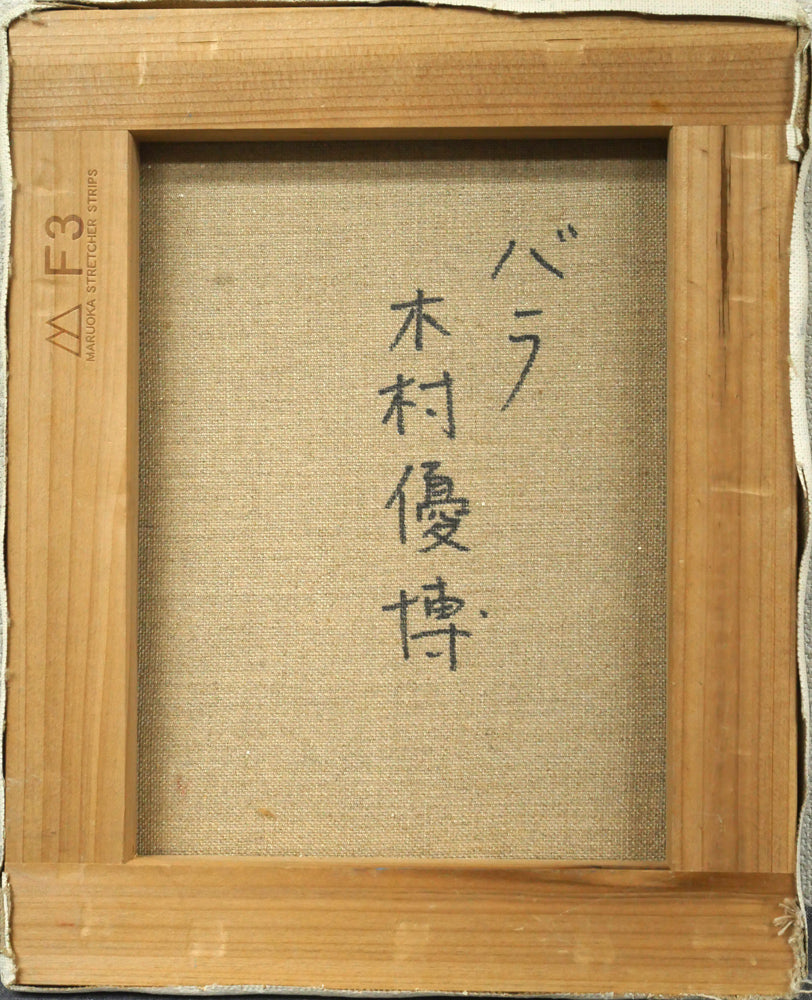 バラ
木村優博
F3
MARUOKA STRETCHER STRIPS